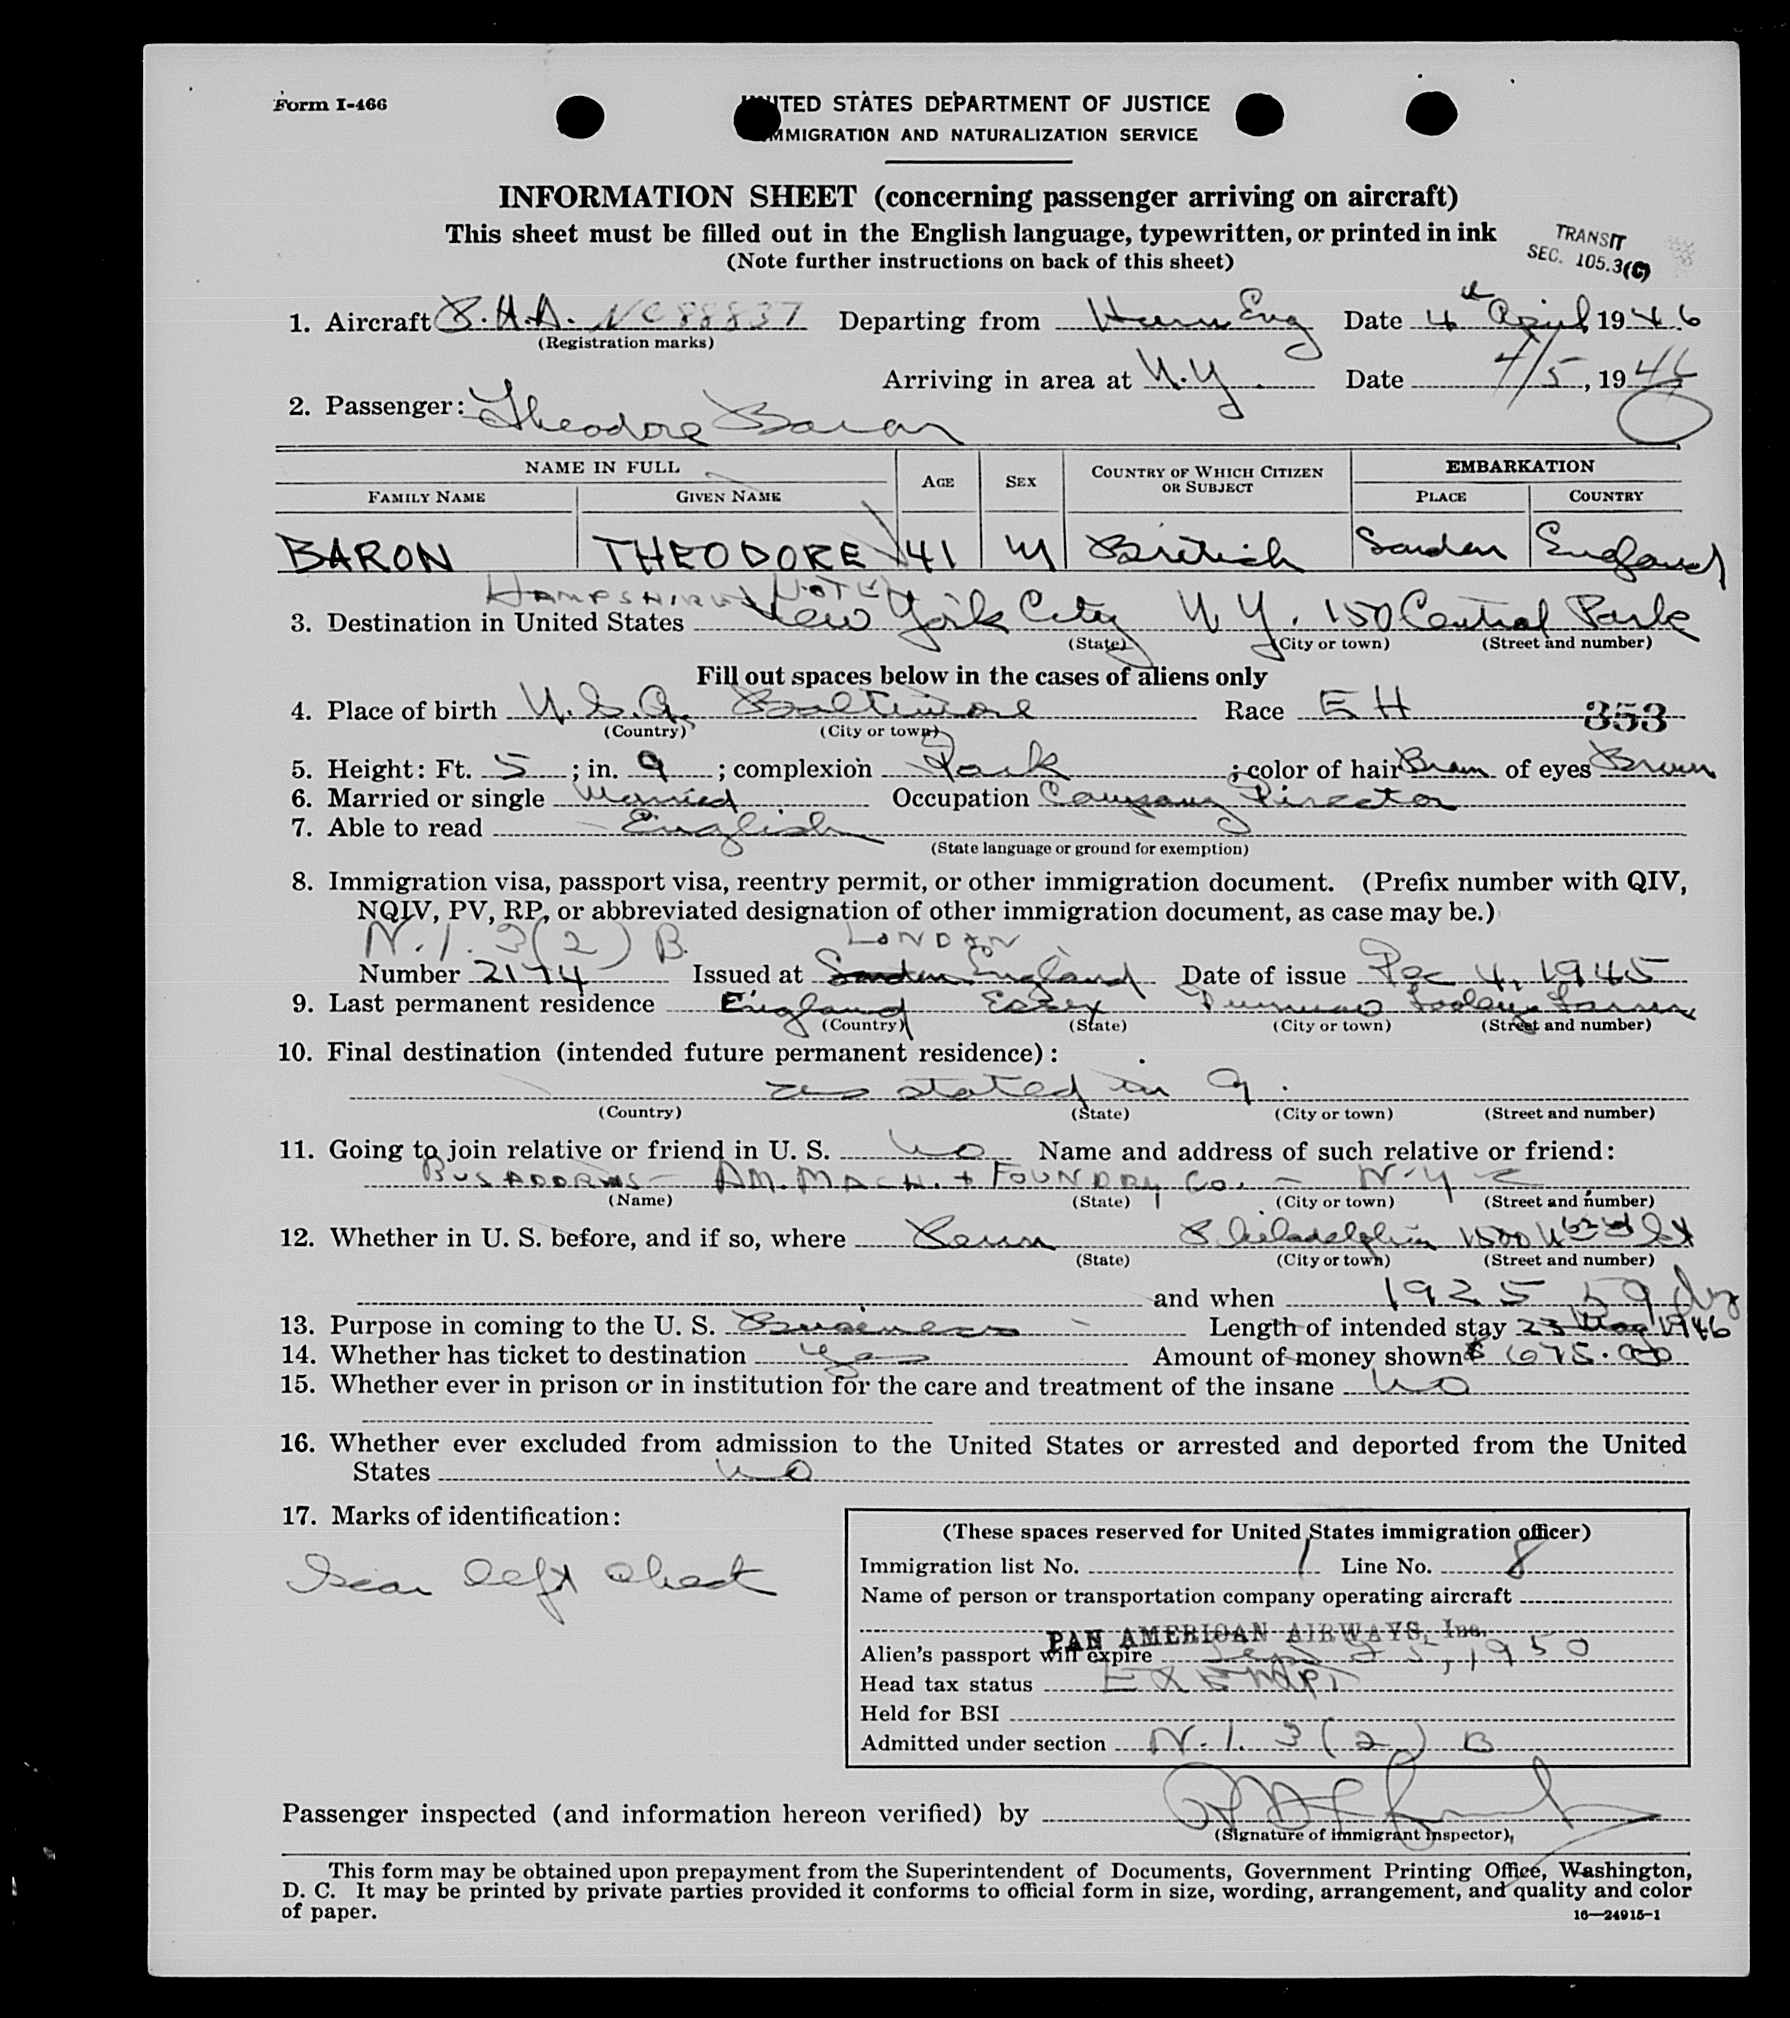 Form I-466
UNITED STATES DEPARTMENT OF JUSTICE
IMMIGRATION AND NATURALIZATION SERVICE
INFORMATION SHEET (concerning passenger arriving on aircraft)
This sheet must be filled out in the English language, typewritten, or printed in ink
(Note further instructions on back of this sheet)
TRANSIT
SEC. 105.3(C)
1. Aircraft NC 88837 Departing from Hurn Eng Date 4th April 1946
(Registration marks)
Arriving in area at N.Y. Date 4/5, 1946
2. Passenger: Theodore Baron
NAME IN FULL AGE SEX COUNTRY OF WHICH CITIZEN OR SUBJECT EMBARKATION
FAMILY NAME GIVEN NAME PLACE COUNTRY
BARON THEODORE 41 M British London England
HAMPSHIRE HOTEL
3. Destination in United States New York City N.Y. 150 Central Park
(State) (City or town) (Street and number)
Fill out spaces below in the cases of aliens only
4. Place of birth U.S.A. Baltimore Race EH 353
(Country) (City or town)
5. Height: Ft. 5; in. 9; complexion Dark; color of hair Brown of eyes Brown
6. Married or single Married Occupation Company Director
7. Able to read English
(State language or ground for exemption)
8. Immigration visa, passport visa, reentry permit, or other immigration document. (Prefix number with QIV,
NQIV, PV, RP, or abbreviated designation of other immigration document, as case may be.)
N.I. 3(2) B. LONDON
Number 2174 Issued at London England Date of issue Dec 4, 1945
9. Last permanent residence England Essex Dunmow Farm
(Country) (State) (City or town) (Street and number)
10. Final destination (intended future permanent residence):
as stated in 9.
(Country) (State) (City or town) (Street and number)
11. Going to join relative or friend in U. S. no Name and address of such relative or friend:
BUS ADDRESS - AM. MACH. + FOUNDRY CO. - N.Y.C
(Name) (State) (City or town) (Street and number)
12. Whether in U. S. before, and if so, where Penn Philadelphia 1500 N 62nd St
(State) (City or town) (Street and number)
and when 1925 59 dys
13. Purpose in coming to the U. S. Business - Length of intended stay 23 May 1946
14. Whether has ticket to destination yes Amount of money shown $ 675.00
15. Whether ever in prison or in institution for the care and treatment of the insane no
16. Whether ever excluded from admission to the United States or arrested and deported from the United
States no
17. Marks of identification:
Scar left cheek
(These spaces reserved for United States immigration officer)
Immigration list No. 1 Line No. 8
Name of person or transportation company operating aircraft
PAN AMERICAN AIRWAYS, Inc.
Alien's passport will expire Sept 25, 1950
Head tax status EXEMPT
Held for BSI
Admitted under section N.I. 3(2) B
Passenger inspected (and information hereon verified) by
(Signature of immigrant inspector)
This form may be obtained upon prepayment from the Superintendent of Documents, Government Printing Office, Washington,
D. C. It may be printed by private parties provided it conforms to official form in size, wording, arrangement, and quality and color
of paper.
16—24915-1